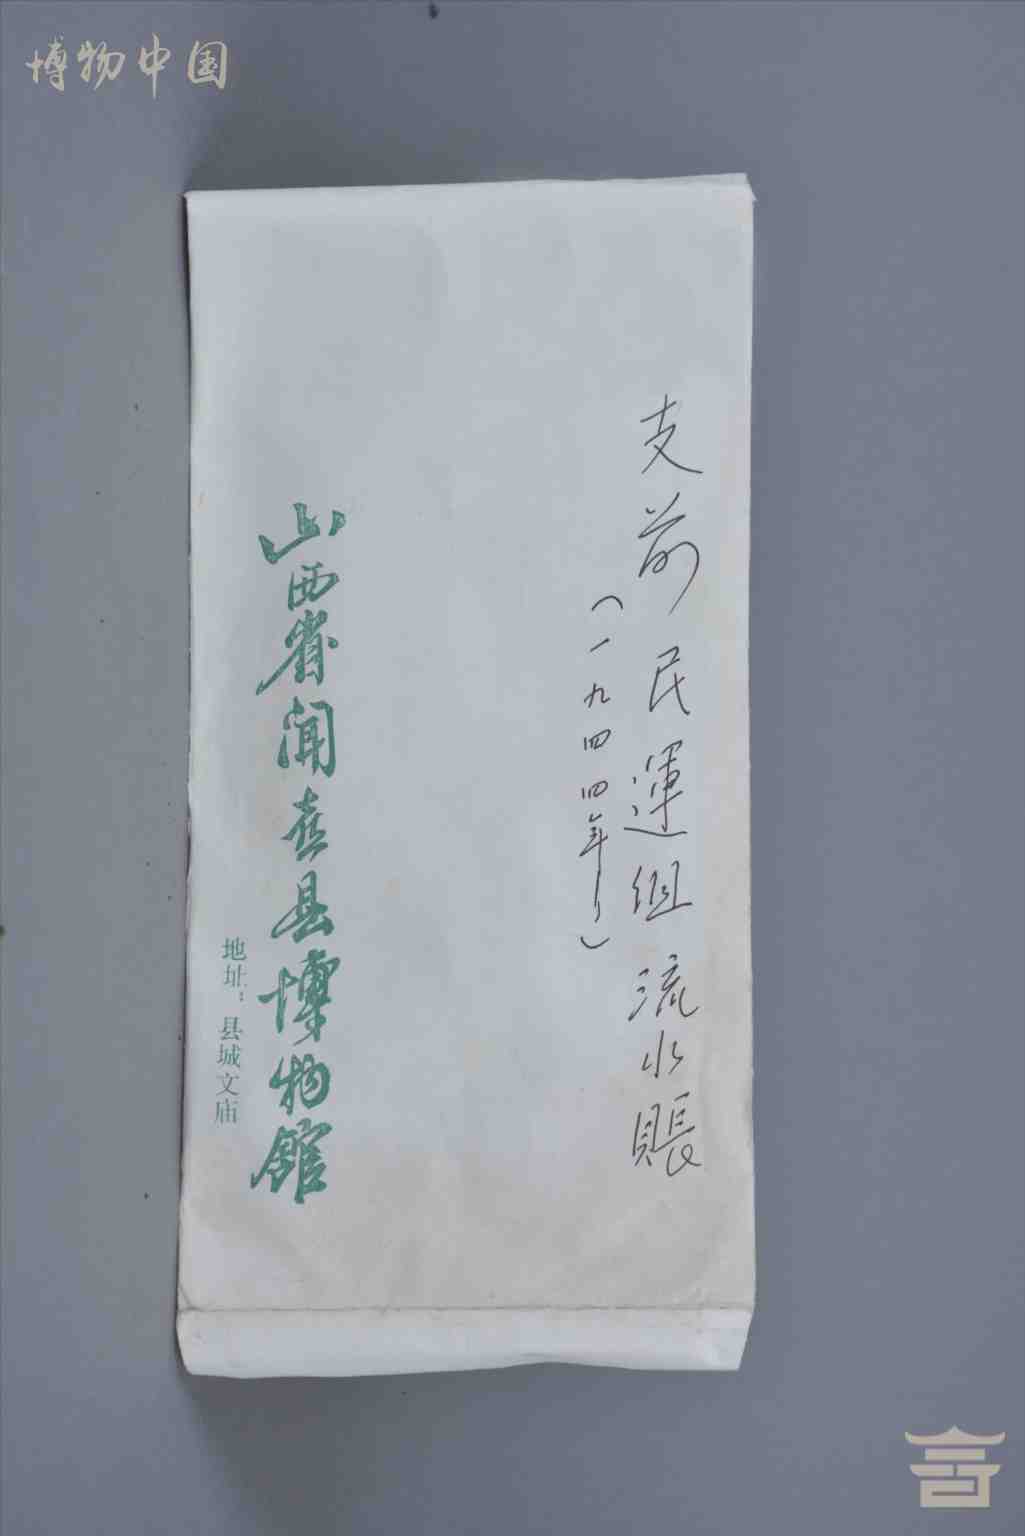 博物中国
支前民運组流水賬
（一九四四年）
山西省闻喜县博物馆
地址：县城文庙